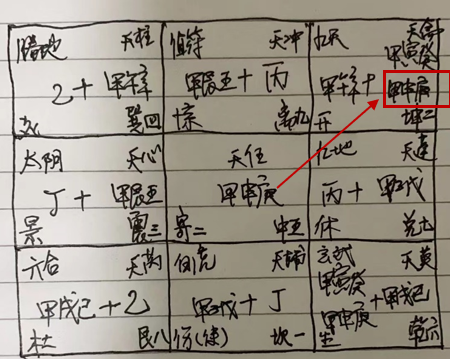 螣蛇 天柱
乙+甲午辛
死 巽四
值符 天冲
甲辰壬+丙
惊 离九
九天 天禽
甲寅癸
甲午辛+
甲申庚
开 坤二
太阴 天心
丁+甲辰壬
景 震三
天任
甲申庚
寄二 中五
九地 天蓬
丙+甲子戊
休 兑七
六合 天芮
甲戌己+乙
杜 艮八
白虎 天辅
甲子戊+丁
伤(使) 坎一
玄武 天英
甲寅癸
甲申庚+甲戌己
生 乾六